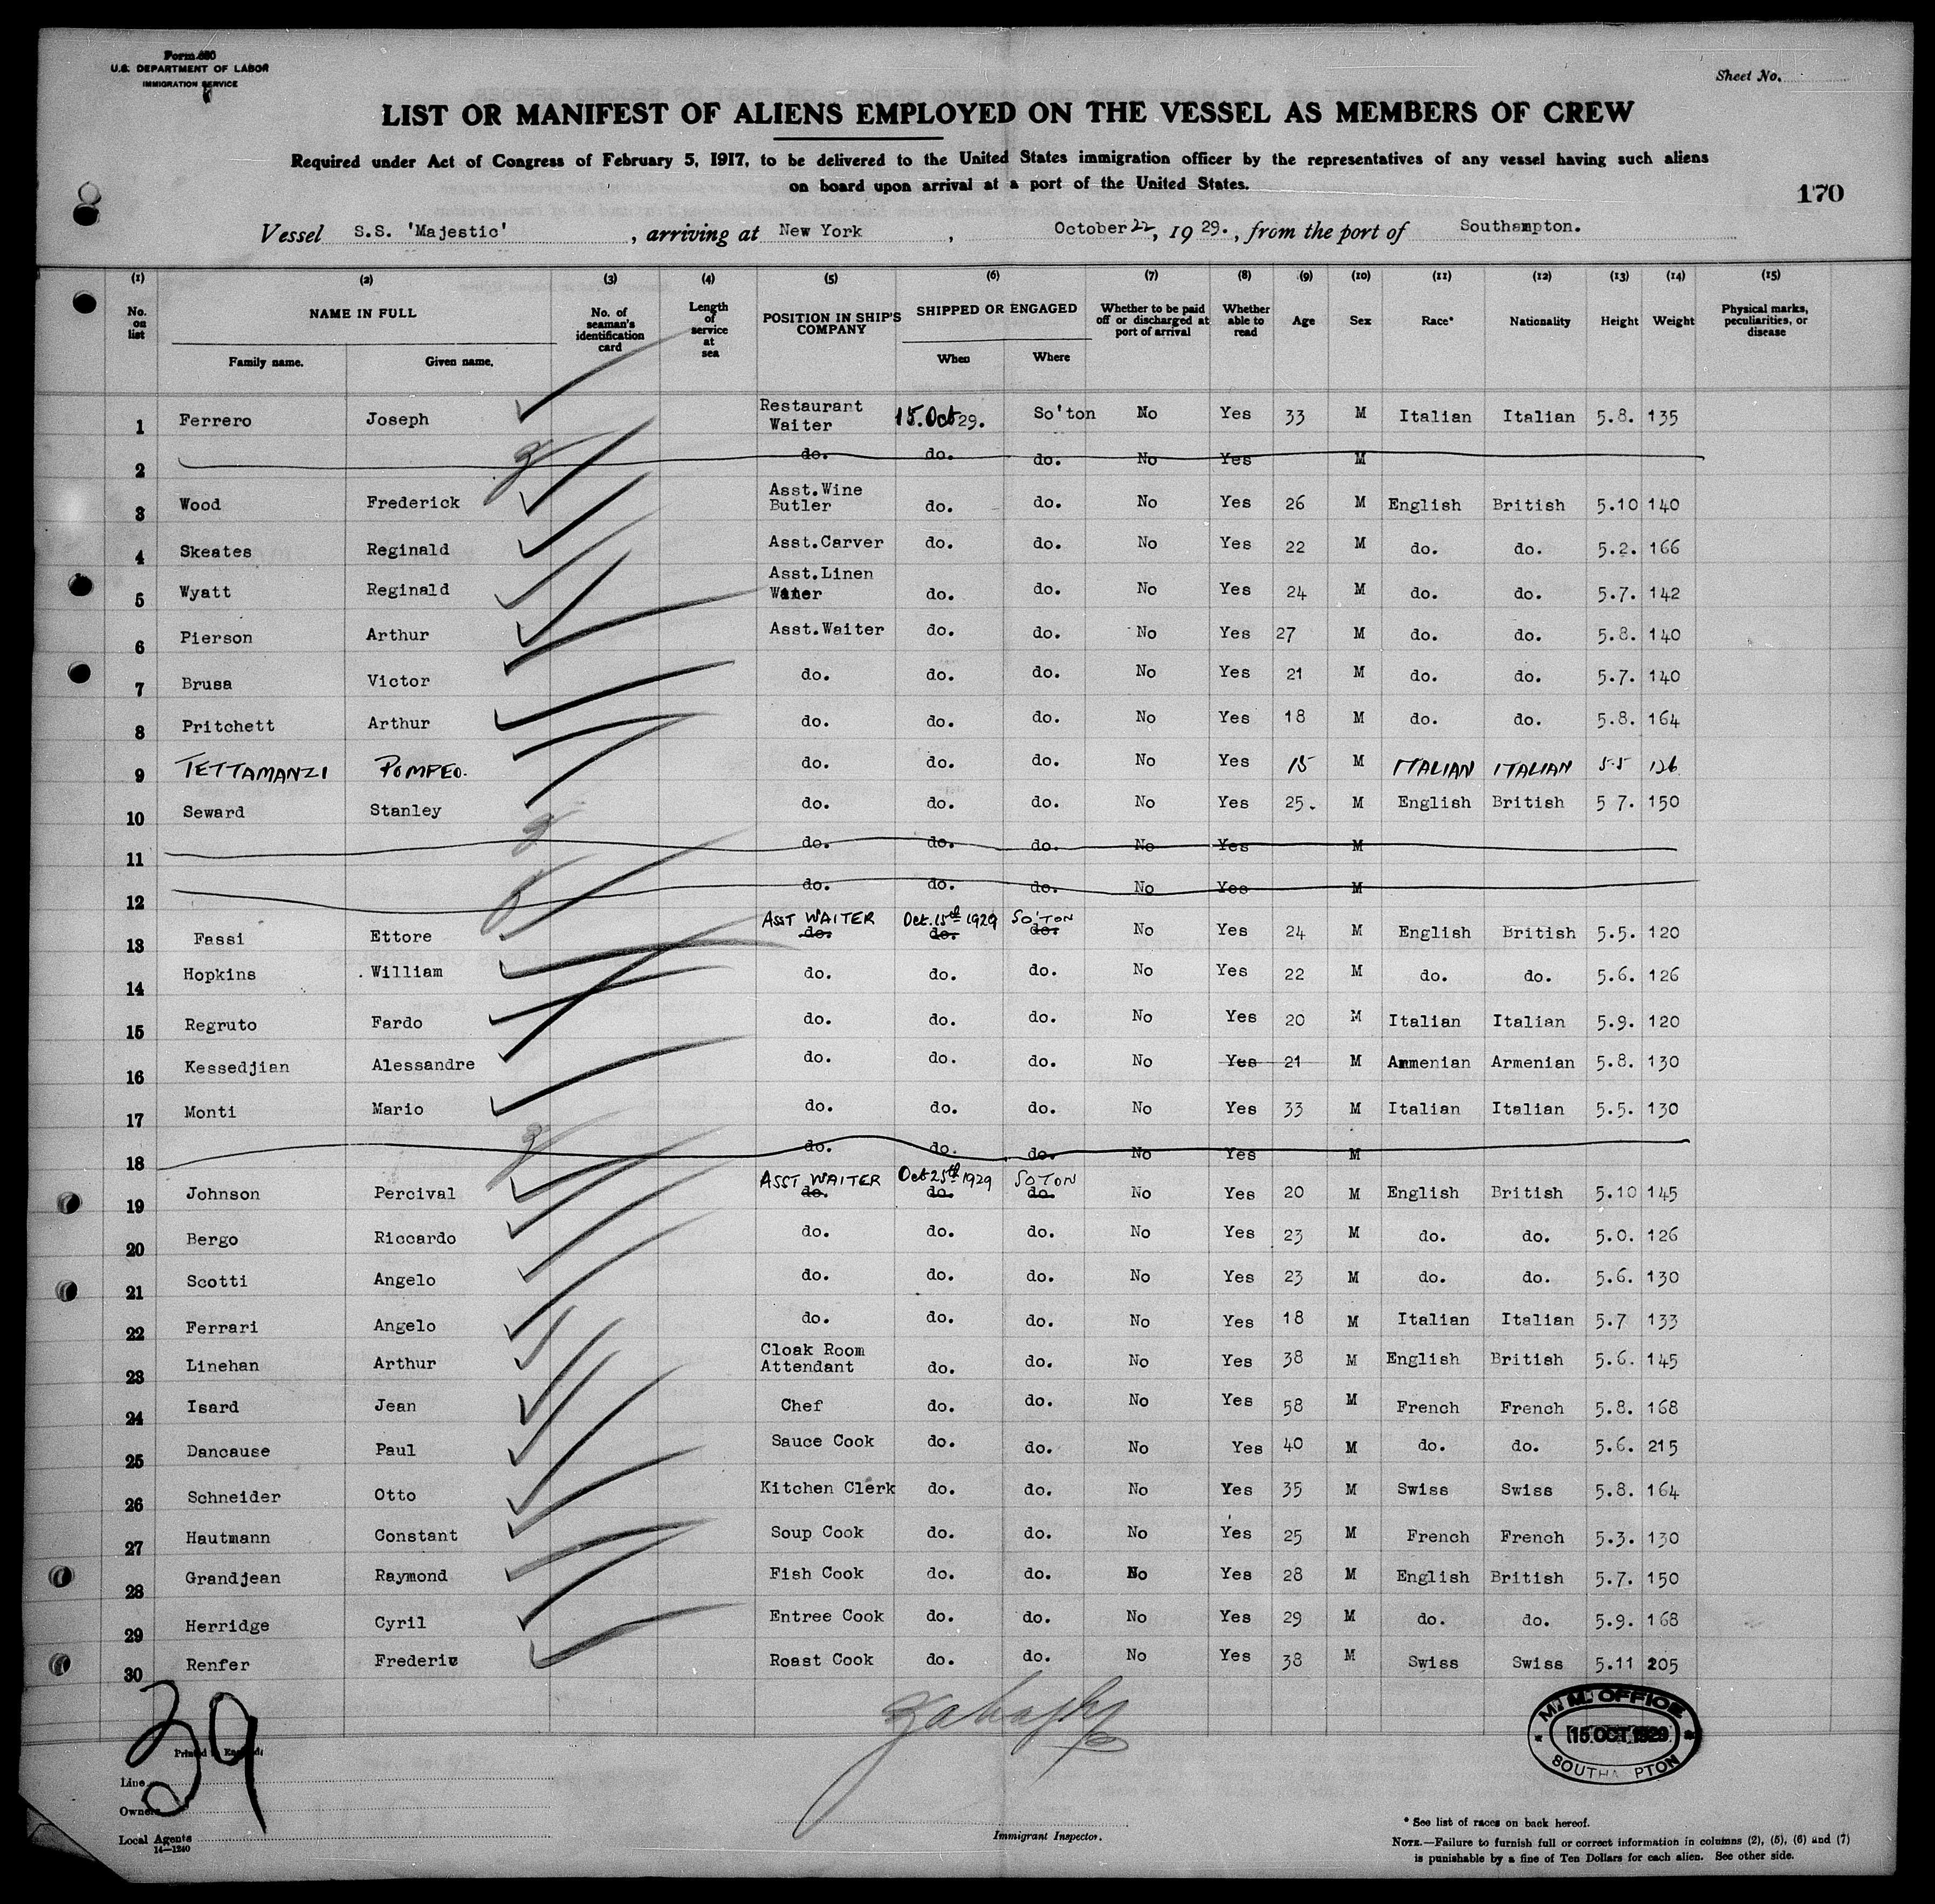 Form 680
U.S. DEPARTMENT OF LABOR
IMMIGRATION SERVICE
Sheet No.
LIST OR MANIFEST OF ALIENS EMPLOYED ON THE VESSEL AS MEMBERS OF CREW
Required under Act of Congress of February 5, 1917, to be delivered to the United States immigration officer by the representatives of any vessel having such aliens
on board upon arrival at a port of the United States.
170
Vessel S.S. 'Majestic' , arriving at New York , October 22, 19 29. , from the port of Southampton.
(1) (2) (3) (4) (5) (6) (7) (8) (9) (10) (11) (12) (13) (14) (15)
No. on list NAME IN FULL No. of seaman's identification card Length of service at sea POSITION IN SHIP'S COMPANY SHIPPED OR ENGAGED Whether to be paid off or discharged at port of arrival Whether able to read Age Sex Race* Nationality Height Weight Physical marks, peculiarities, or disease
Family name. Given name. When Where
1 Ferrero Joseph Restaurant Waiter 15.Oct 29. So'ton No Yes 33 M Italian Italian 5.8. 135
2 do. do. do. No Yes M
3 Wood Frederick Asst.Wine Butler do. do. No Yes 26 M English British 5.10 140
4 Skeates Reginald Asst.Carver do. do. No Yes 22 M do. do. 5.2. 166
5 Wyatt Reginald Asst.Linen do. do. No Yes 24 M do. do. 5.7. 142
6 Pierson Arthur Asst.Waiter do. do. No Yes 27 M do. do. 5.8. 140
7 Brusa Victor do. do. do. No Yes 21 M do. do. 5.7. 140
8 Pritchett Arthur do. do. do. No Yes 18 M do. do. 5.8. 164
9 TETTAMANZI POMPEO. do. do. do. No Yes 15 M ITALIAN ITALIAN 5.5 126
10 Seward Stanley do. do. do. No Yes 25. M English British 5 7. 150
11 do. do. do. No Yes M
12 do. do. do. No Yes M
13 Fassi Ettore ASST WAITER do. Oct. 15th 1929 do. SO'TON do. No Yes 24 M English British 5.5. 120
14 Hopkins . William do. do. do. No Yes 22 M do. do. 5.6. 126
15 Regruto Fardo do. do. do. No Yes 20 M Italian Italian 5.9. 120
16 Kessedjian Alessandre do. do. do. No Yes 21 M Ammenian Armenian 5.8. 130
17 Monti Mario do. do. do. No Yes 33 M Italian Italian 5.5. 130
18 do. do. do. No Yes M
19 Johnson Percival ASST WAITER do. Oct 25th 1929 do. SOTON do No Yes 20 M English British 5.10 145
20 Bergo Riccardo do. do. do. No Yes 23 M do. do. 5.0. 126
21 Scotti Angelo do. do. do. No Yes 23 M do. do. 5.6. 130
22 Ferrari Angelo do. do. do. No Yes 18 M Italian Italian 5.7 133
23 Linehan Arthur Cloak Room Attendant do. do. No Yes 38 M English British 5.6. 145
24 Isard Jean Chef do. do. No Yes 58 M French French 5.8. 168
25 Dancause Paul Sauce Cook do. do. No Yes 40 M do. do. 5.6. 215
26 Schneider Otto Kitchen Clerk do. do. No Yes 35 M Swiss Swiss 5.8. 164
27 Hautmann Constant Soup Cook do. do. No Yes 25 M French French 5.3. 130
28 Grandjean Raymond Fish Cook do. do. No Yes 28 M English British 5.7. 150
29 Herridge Cyril Entree Cook do. do. No Yes 29 M do. do. 5.9. 168
30 Renfer Frederic Roast Cook do. do. No Yes 38 M Swiss Swiss 5.11 205
39
M.M. OFFICE
15 OCT 1929
SOUTHA PTON
Line
Owners
Local Agents
14—1240
Immigrant Inspector.
* See list of races on back hereof.
NOTE.—Failure to furnish full or correct information in columns (2), (5), (6) and (7)
is punishable by a fine of Ten Dollars for each alien. See other side.